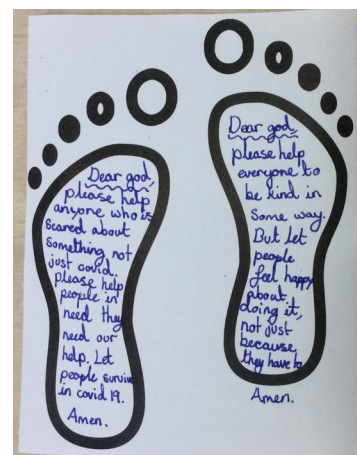 Dear god,
please help
anyone who is
scared about
something not
just covid.
please help
people in
need they
need our
help. Let
people survive
in covid 19.
Amen.
Dear god,
please help
everyone to
be kind in
some way.
But let
people
feel happy
about
doing it,
not just
because
they have to
Amen.